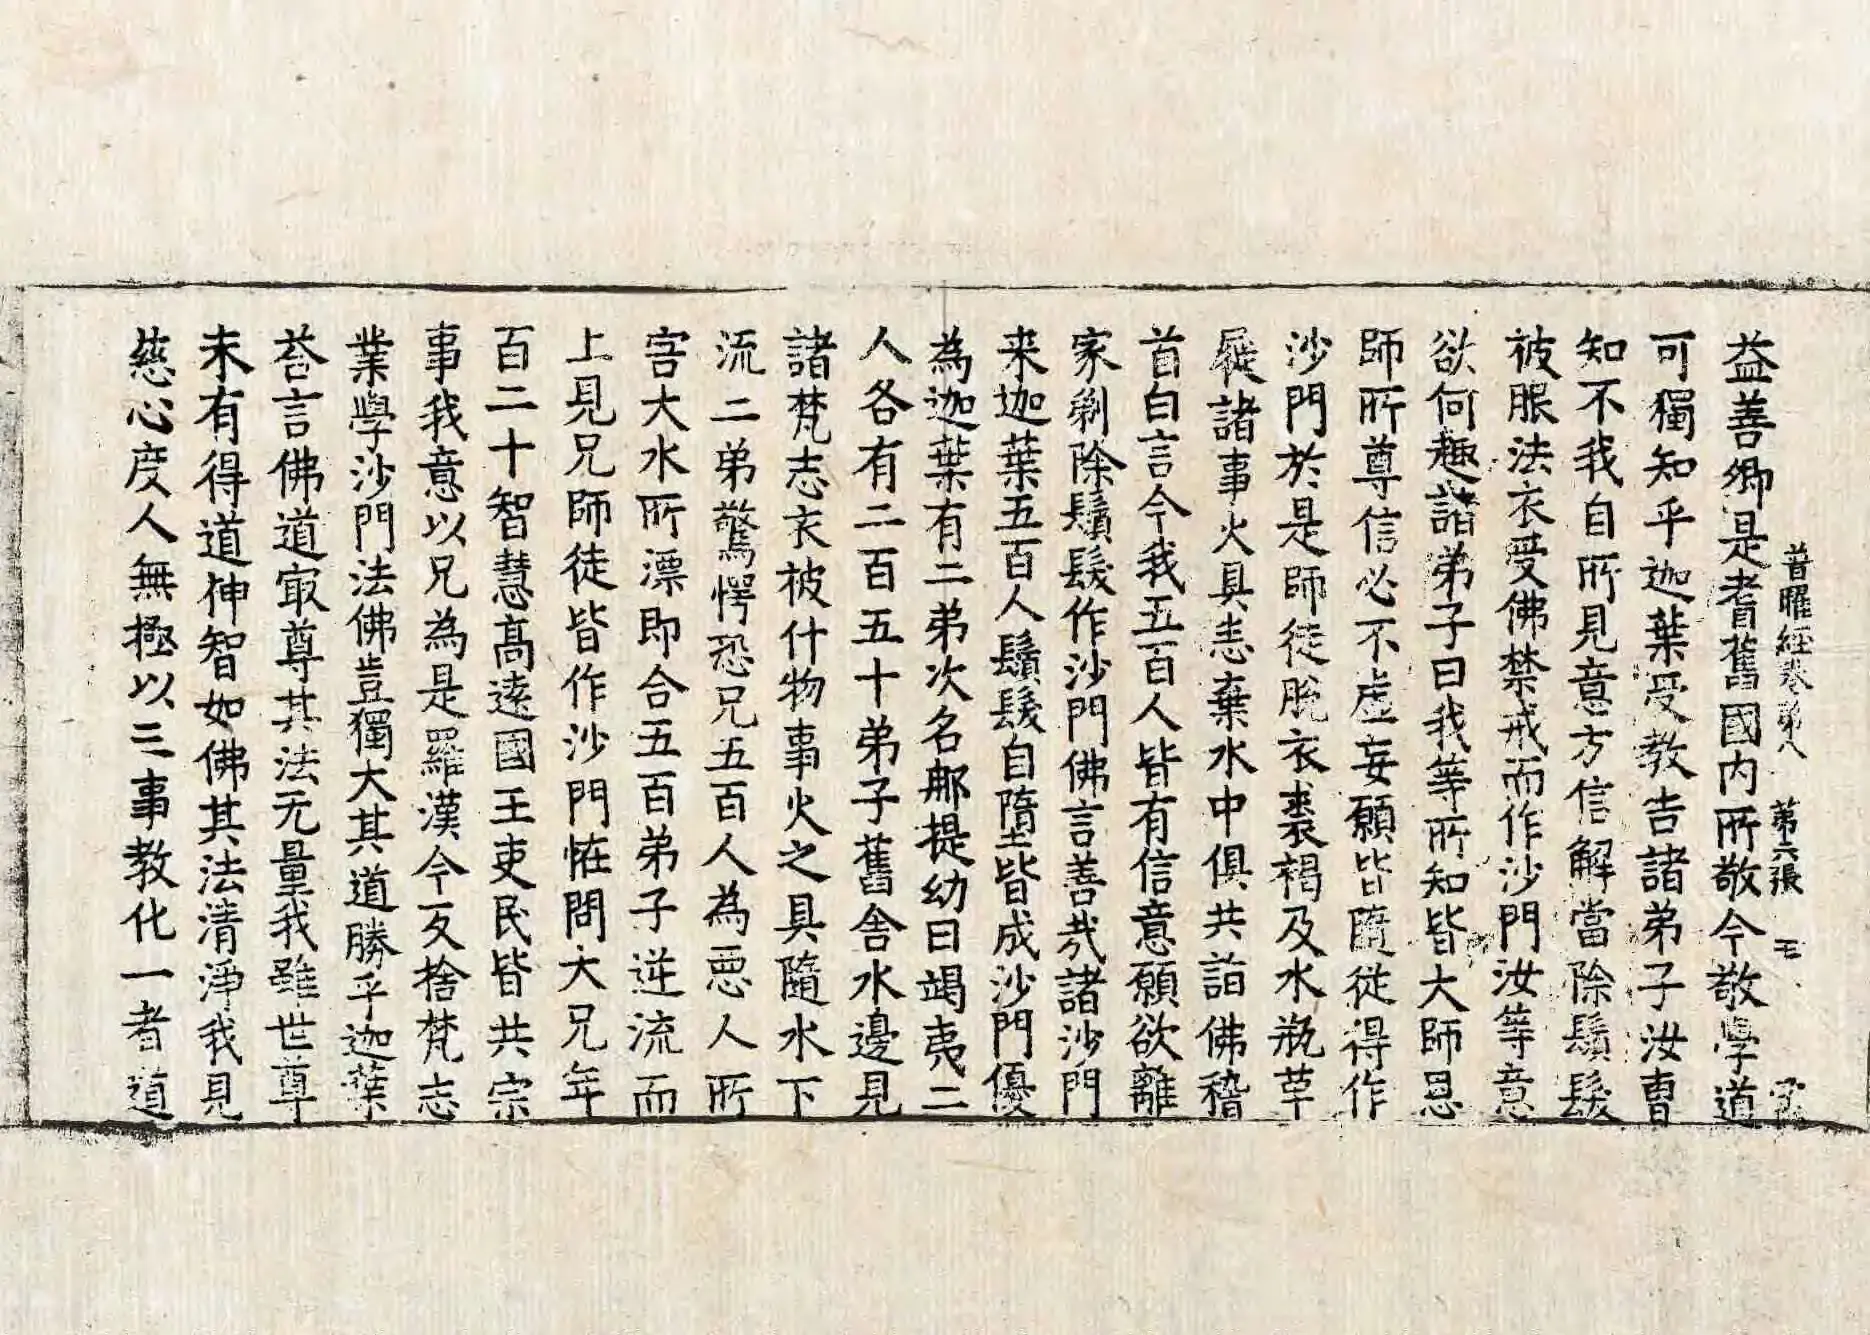 普曜經卷第八 第六張
益善卿是耆舊國內所敬今敬學道
可獨知乎迦葉受教告諸弟子汝曺
知不我自所見意方信解當除鬚髮
被服法衣受佛禁戒而作沙門汝等意
欲何趣諸弟子曰我等所知皆大師恩
師所尊信必不虛妄願皆隨從得作
沙門於是師徒脫衣裘褐及水瓶草
屣諸事火具悉棄水中俱共詣佛稽
首白言今我五百人皆有信意願欲離
家剃除鬚髮作沙門佛言善哉諸沙門
来迦葉五百人鬚髮自墮皆成沙門優
為迦葉有二弟次名那提幼曰竭夷二
人各有二百五十弟子舊舍水邊見
諸梵志衣被什物事火之具隨水下
流二弟驚愕恐兄五百人為惡人所
害大水所漂即合五百弟子逆流而
上見兄師徒皆作沙門恠問大兄年
百二十智慧高遠國王吏民皆共宗
事我意以兄為是羅漢今反捨梵志
業學沙門法佛豈獨大其道勝乎迦葉
荅言佛道㝡尊其法无量我雖世尊
未有得道伸智如佛其法清淨我見
慈心度人無極以三事教化一者道